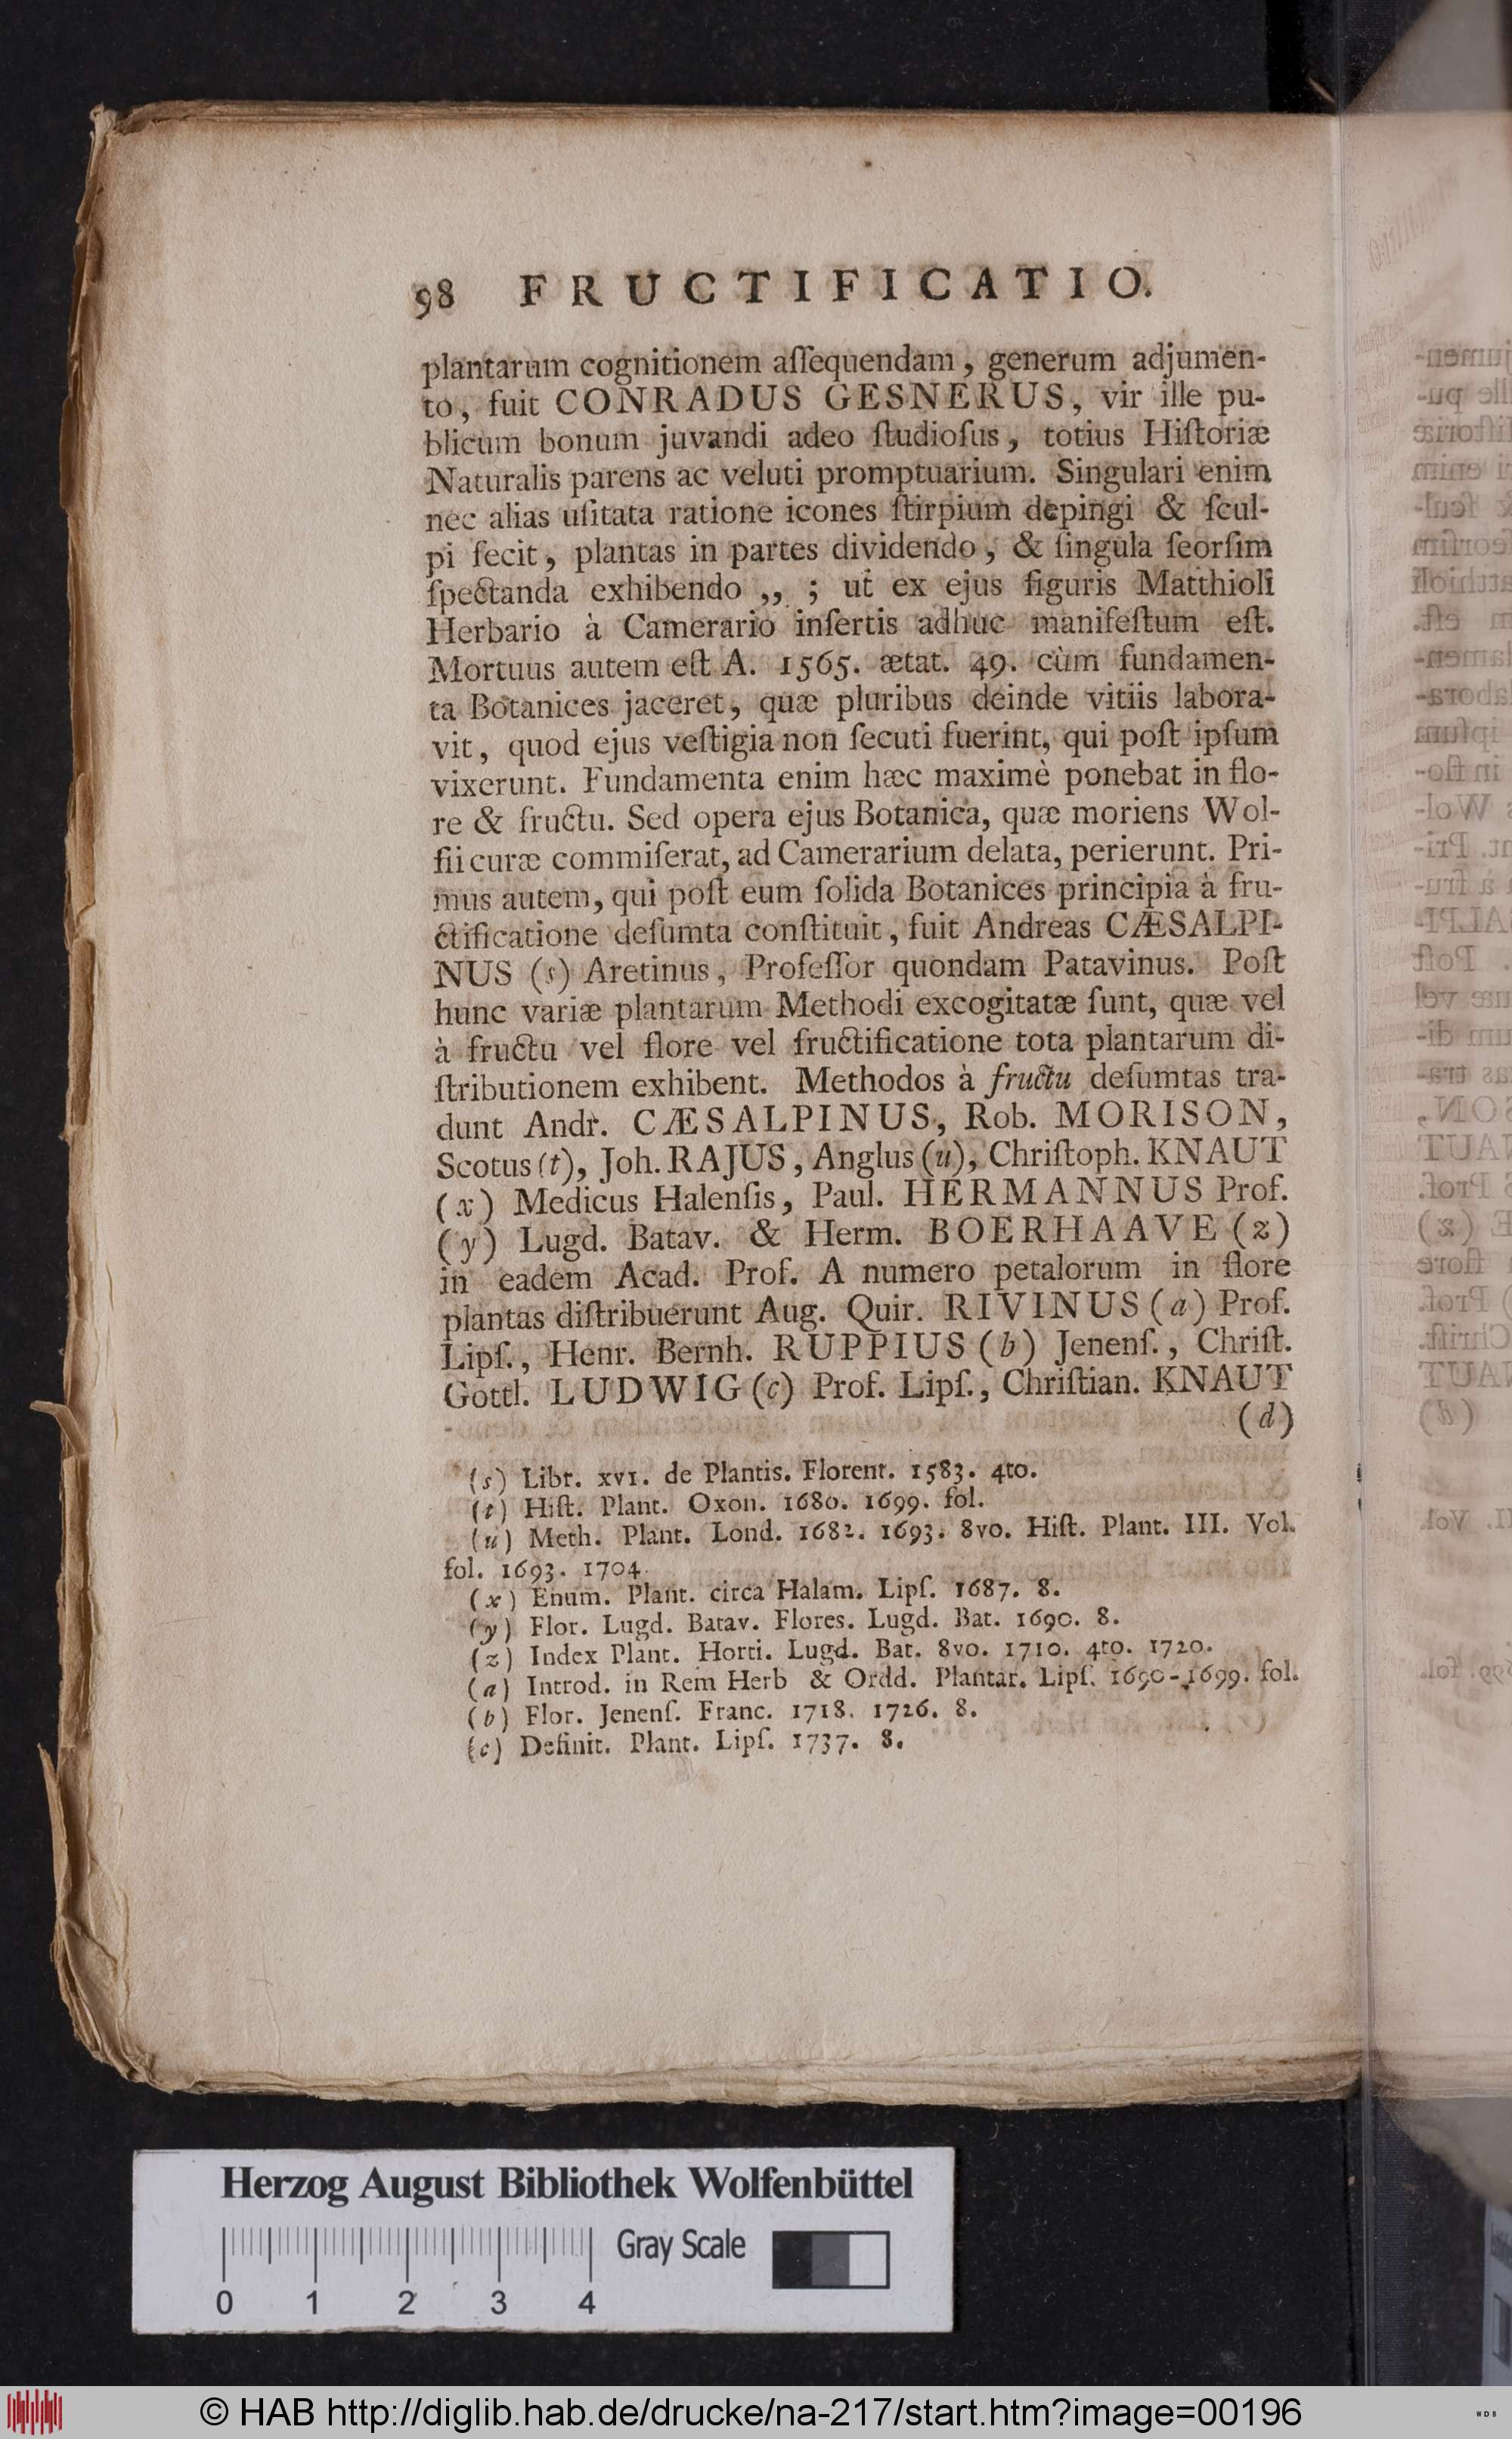 98 FRUCTIFICATIO.
plantarum cognitionem aſſequendam, generum adjumen-
to, fuit CONRADUS GESNERUS, vir ille pu-
blicum bonum juvandi adeo ſtudioſus, totius Hiſtoriæ
Naturalis parens ac veluti promptuarium. Singulari enim
nec alias uſitata ratione icones ſtirpium depingi & ſcul-
pi fecit, plantas in partes dividendo, & ſingula ſeorſim
ſpectanda exhibendo „ ; ut ex ejus figuris Matthioli
Herbario à Camerario inſertis adhuc manifeſtum eſt.
Mortuus autem eſt A. 1565. ætat. 49. cùm fundamen-
ta Botanices jaceret, quæ pluribus deinde vitiis labora-
vit, quod ejus veſtigia non ſecuti fuerint, qui poſt ipſum
vixerunt. Fundamenta enim hæc maximè ponebat in flo-
re & fructu. Sed opera ejus Botanica, quæ moriens Wol-
fii curæ commiſerat, ad Camerarium delata, perierunt. Pri-
mus autem, qui poſt eum ſolida Botanices principia à fru-
ctificatione deſumta conſtituit, fuit Andreas CÆSALPI-
NUS (s) Aretinus, Profeſſor quondam Patavinus. Poſt
hunc variæ plantarum Methodi excogitatæ ſunt, quæ vel
à fructu vel flore vel fructificatione tota plantarum di-
ſtributionem exhibent. Methodos à fructu deſumtas tra-
dunt Andr. CÆSALPINUS, Rob. MORISON,
Scotus (t), Joh. RAJUS, Anglus (u), Chriſtoph. KNAUT
(x) Medicus Halenſis, Paul. HERMANNUS Prof.
(y) Lugd. Batav. & Herm. BOERHAAVE (z)
in eadem Acad. Prof. A numero petalorum in flore
plantas diſtribuerunt Aug. Quir. RIVINUS (a) Prof.
Lipſ., Henr. Bernh. RUPPIUS (b) Jenenſ., Chriſt.
Gottl. LUDWIG (c) Prof. Lipſ., Chriſtian. KNAUT
(d)
(s) Libr. XVI. de Plantis. Florent. 1583. 4to.
(t) Hiſt. Plant. Oxon. 1680. 1699. fol.
(u) Meth. Plant. Lond. 1682. 1693. 8vo. Hiſt. Plant. III. Vol.
fol. 1693. 1704.
(x) Enum. Plant. circa Halam. Lipſ. 1687. 8.
(y) Flor. Lugd. Batav. Flores. Lugd. Bat. 1690. 8.
(z) Index Plant. Horti. Lugd. Bat. 8vo. 1710. 4to. 1720.
(a) Introd. in Rem Herb & Ordd. Plantar. Lipſ. 1690-1699. fol.
(b) Flor. Jenenſ. Franc. 1718. 1726. 8.
(c) Definit. Plant. Lipſ. 1737. 8.
Herzog August Bibliothek Wolfenbüttel
Gray Scale
0 1 2 3 4
© HAB http://diglib.hab.de/drucke/na-217/start.htm?image=00196
WDB